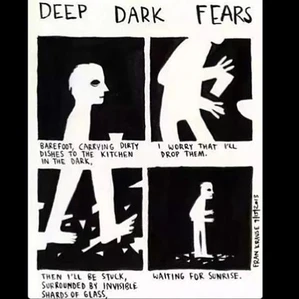 DEEP DARK FEARS
BAREFOOT, CARRYING DIRTY
DISHES TO THE KITCHEN
IN THE DARK,
I WORRY THAT I'LL
DROP THEM.
THEN I'LL BE STUCK,
SURROUNDED BY INVISIBLE
SHARDS OF GLASS,
WAITING FOR SUNRISE.
FRAN KRAUSE